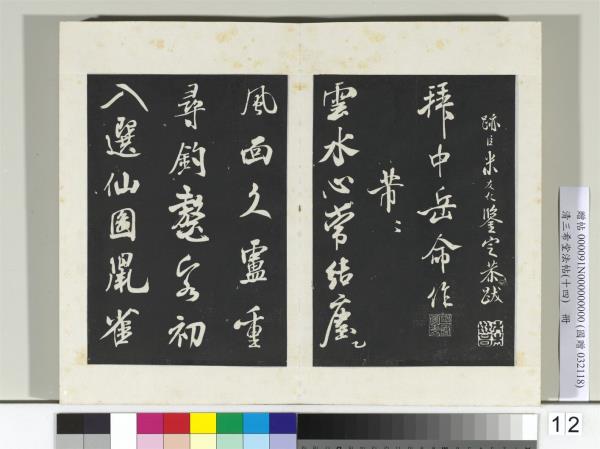 跡臣米友仁鑒定恭跋
拜中岳命作
芾〻
雲水心常結塵
風面久盧重
尋釣鼇客初
入選仙圖鼠雀
贈帖 000091N000000000 (國贈 032118)
清三希堂法帖(十四) 冊
12